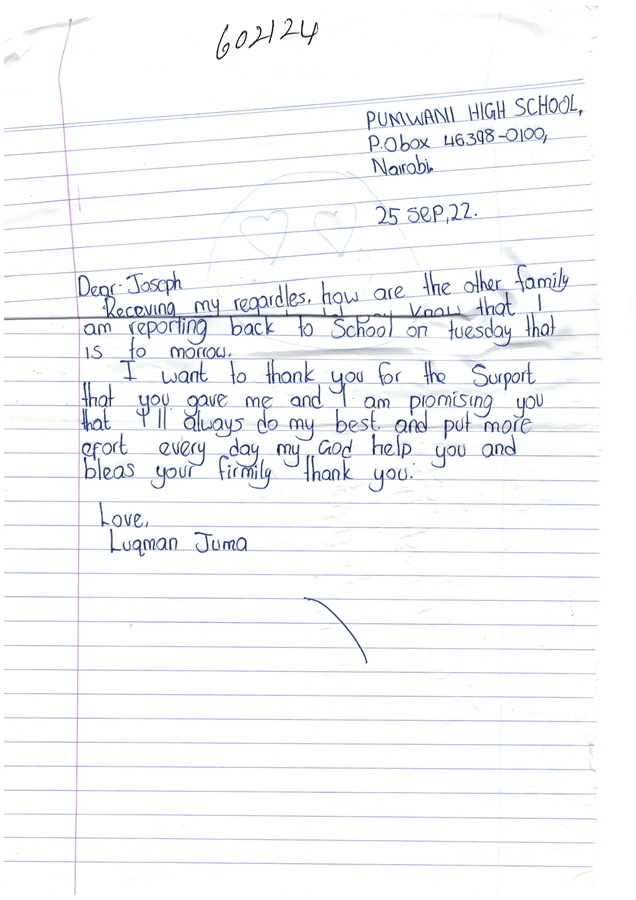 602124
PUMWANI HIGH SCHOOL,
P.O box 46398-0100,
Nairobi.
25 SEP, 22.
Dear. Joseph
Receving my regardles. how are the other family
know that I
am reporting back to School on tuesday that
is to morrow.
I want to thank you for the Surport
that you gave me and I am promising you
that I'll always do my best and put more
efort every day my God help you and
bleas your firmily thank you.
Love,
Luqman Juma